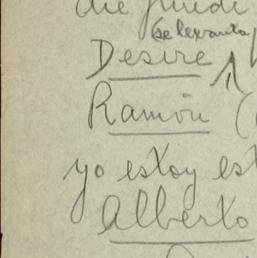 que puede
(se levanta)
Desire
Ramón (
yo estoy est
Alberto